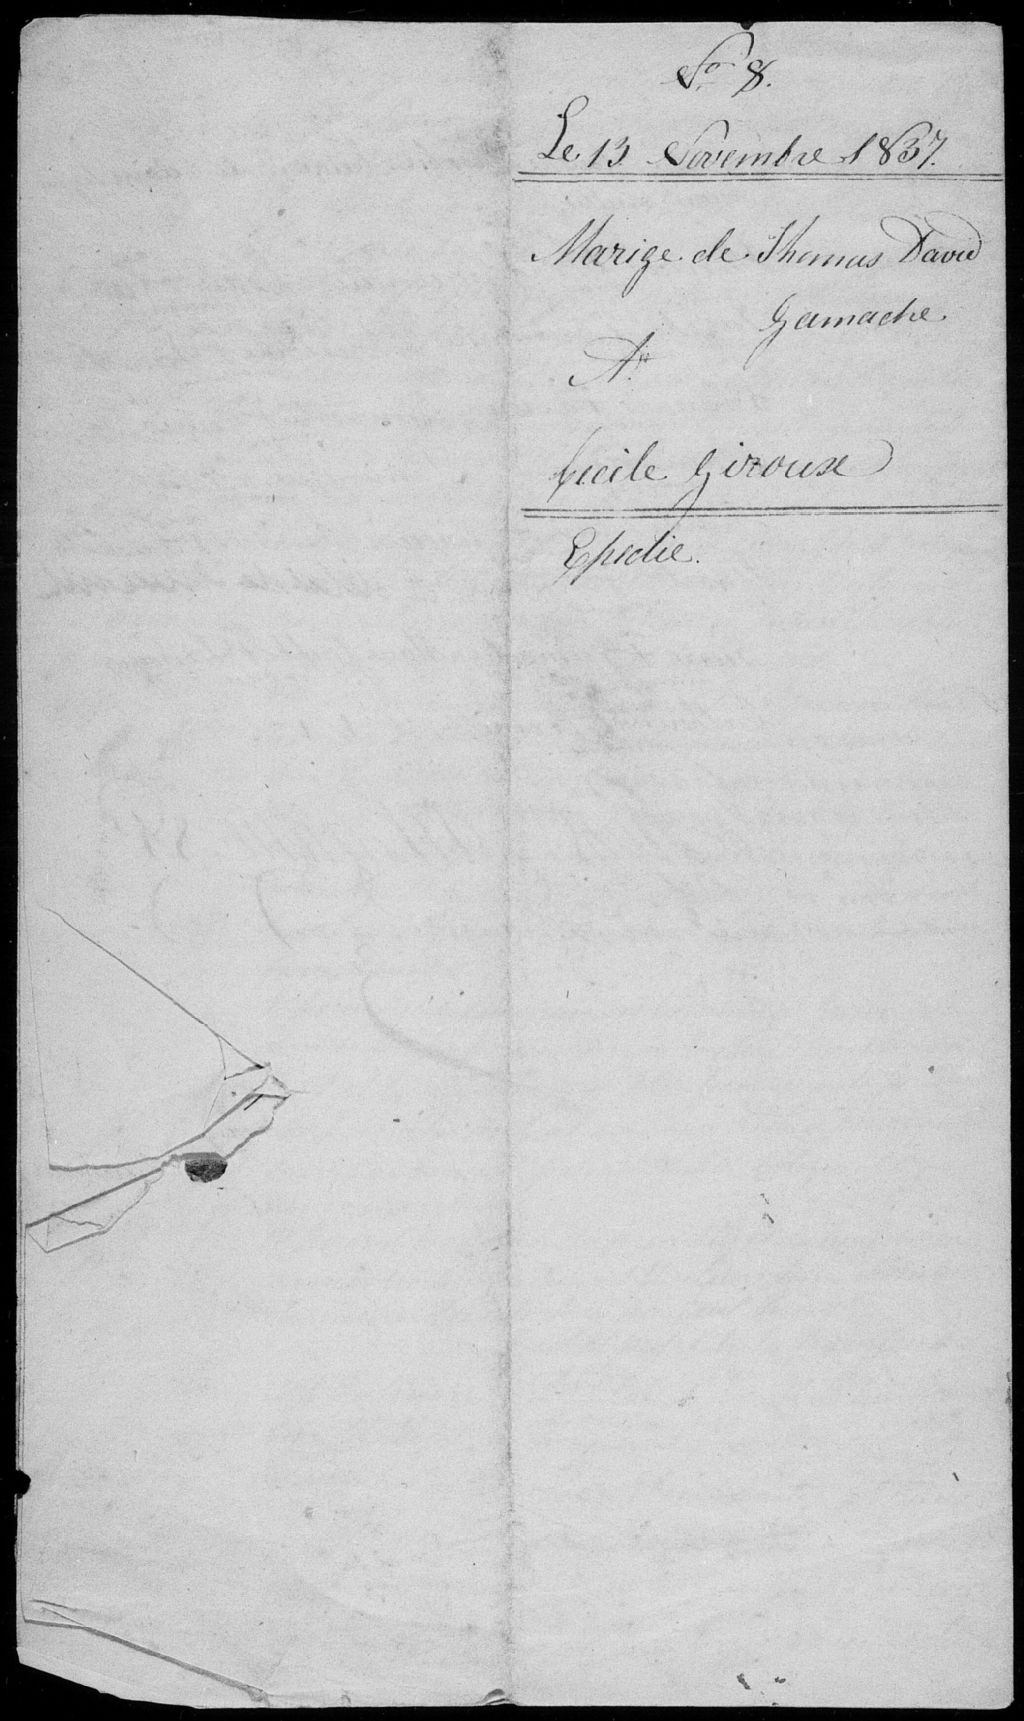 No 8.
Le 13 Novembre 1837.
Marige de Thomas David
Gamache.
A.
Cecile Giroux
Expedie.